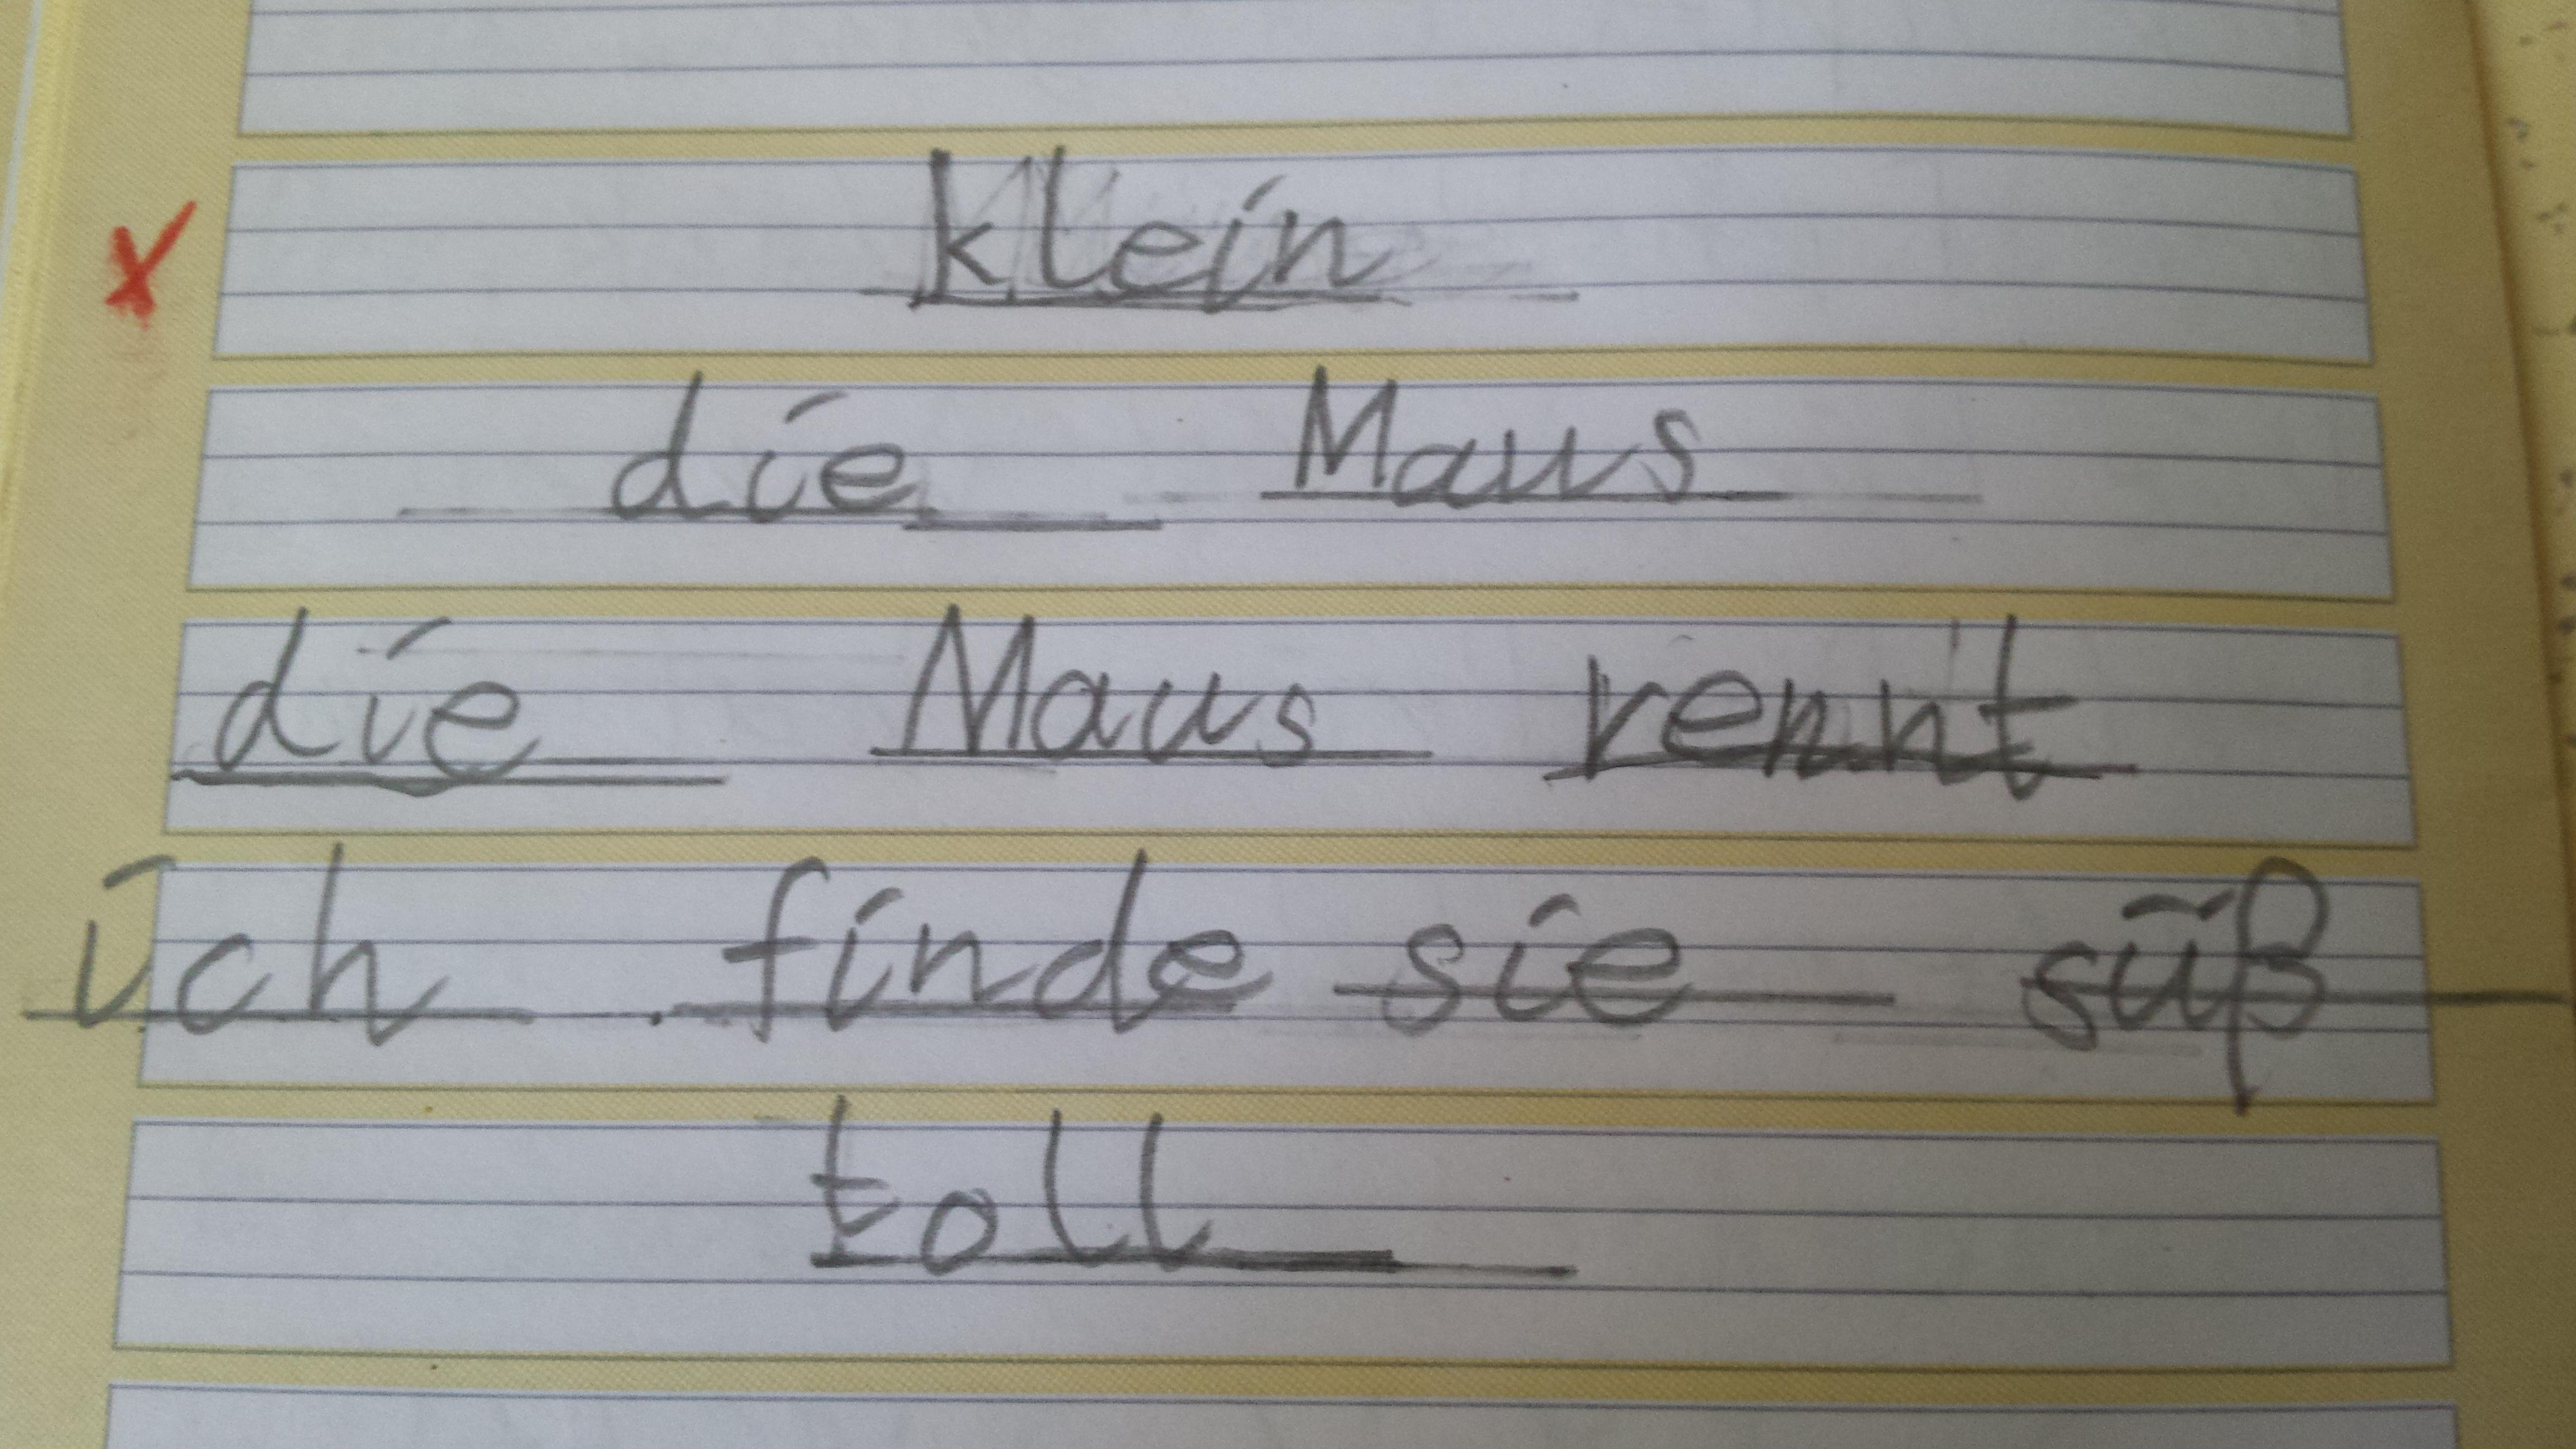 klein
die Maus
die Maus rennt
ich finde sie süß
toll